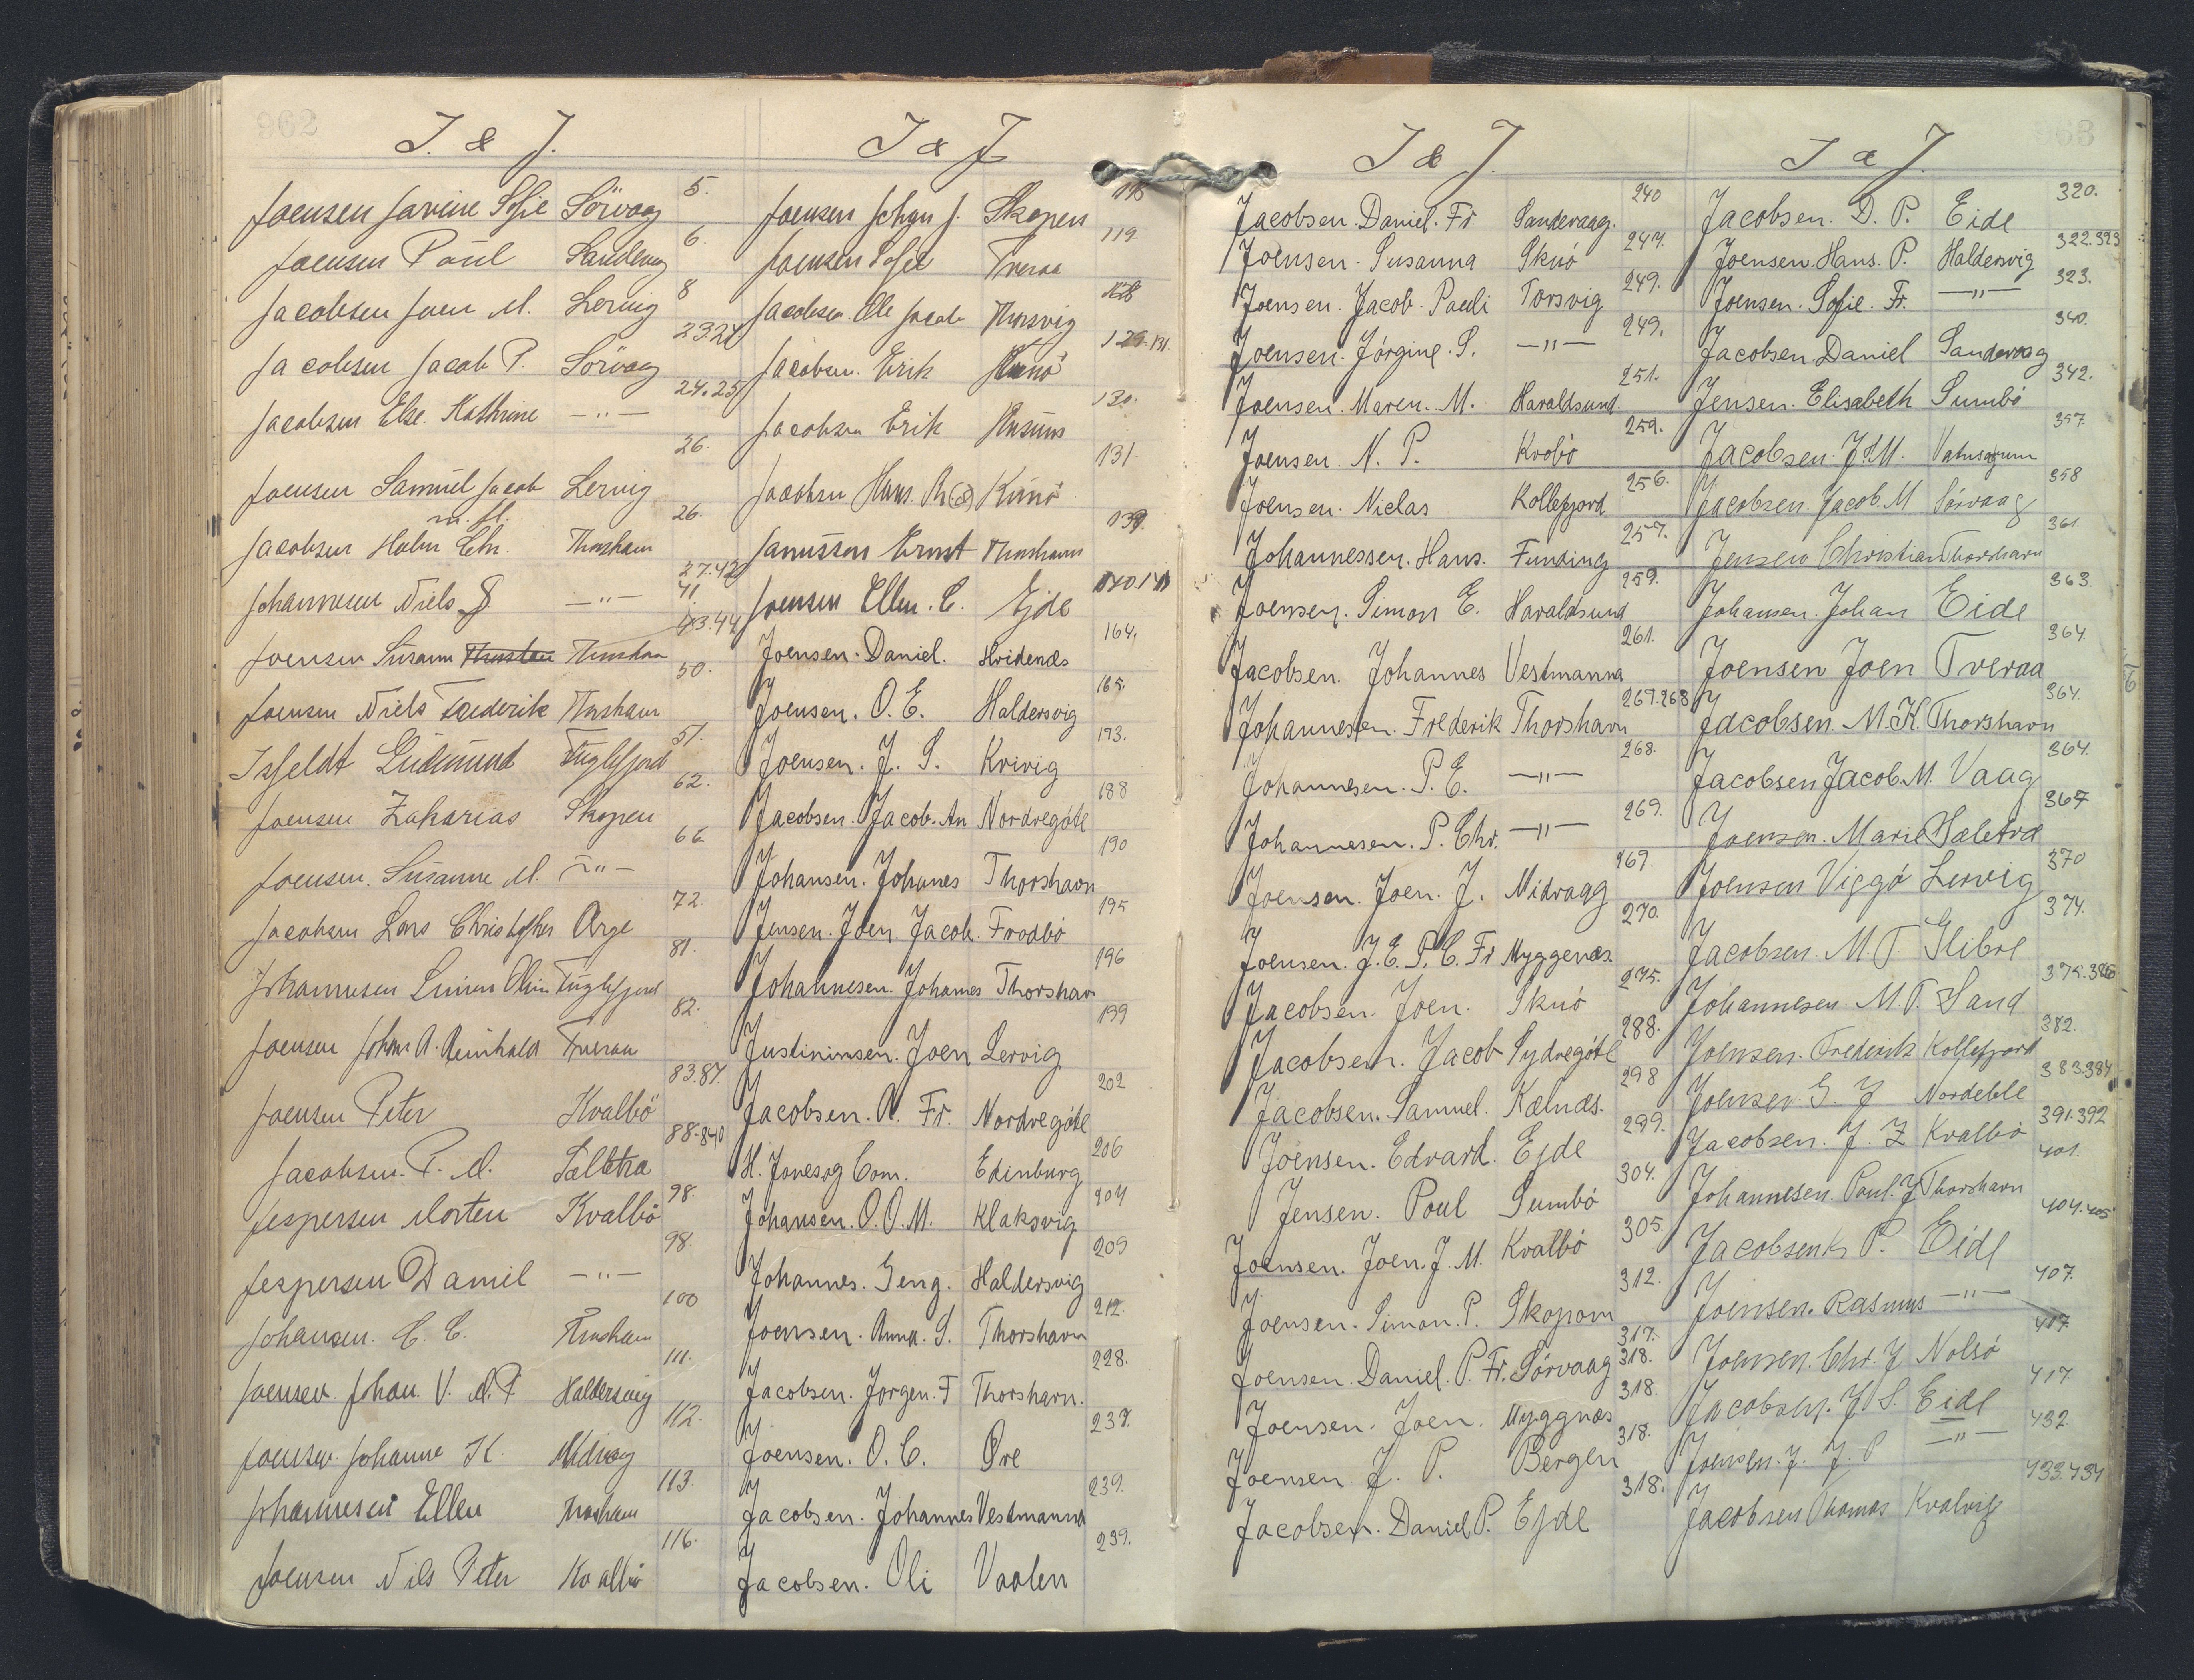 962
I. & J.
Joensen Janine Sofie Sörvaag 5.
Joensen Poul Sandevaag 6.
Jacobsen Joen M. Lervig 8
Jacobsen Jacob P. Sörvaag 23.24
Jacobsen Else Kathrine —"— 24.25
Joensen Samuel Jacob Lervig 26.
m. fl.
Jacobsen Holm Chr. Thorshavn 26.
Johannesen Niels —"— 27.42
Joensen Susanna Thorshavn 43.44
Joensen Niels Frederik Thorshavn 50.
Isfeldt Gudmund Fuglefjord 51.
Joensen Zakarias Skopen 62.
Joensen. Susanne M. —"— 66
Jacobsen Lars Christopher Arge 72.
Johannesen Simun Fuglefjord 81.
Joensen Johan A. Reinhald Tveraa 82.
Joensen Peter Kvalbö 83.87.
Jacobsen P. M. Saltetra 88-840
Jespersen Morten Kvalbö 98.
Jespersen Daniel —"— 98.
Johansen. C. C. Thorshavn 100
Joensen. Johan V. Haldersvig 111.
Joensen. Johanne K. Midvaag 112.
Johannesen Ellen Thorshavn 113.
Joensen Nils Peter Kvalbö 116.
I & J
Joensen Johan J. Skopen
Joensen Sofie Tveraa 119.
Jacobsen. Ole Jacob Thorsvig
Jacobsen. Erik Kunö 131.
Jacobsen Erik Husum 130.
Jacobsen Hans Kunö 131.
Janussen Ernst Thorshavn
Joensen Ellen. C. Ejde
Joensen. Daniel. Hvidenæs 164.
Joensen. O. E. Haldersvig 165.
Joensen. J. S. Kvivig 173.
Jacobsen. Jacob. An Nordregöte 188
Johansen. Johanes Thorshavn 190
Jensen. Joen. Jacob. Frodbö 195
Johannesen. Johannes Thorshav 196
Justininsen. Joen Lervig 199
Jacobsen. A. Fr. Nordregöte 202
H. Jones og Com. Edinburg 206
Johansen. O. O. M. Klaksvig 204
Johannes. Geng. Haldersvig 209
Joensen. Anna. S. Thorshavn 212.
Jacobsen. Jörgen. F Thorshavn. 228.
Joensen. O. C. Øre 237.
Jacobsen. Johannes Vestmanna 239.
Jacobsen. Oli Vaalen 239.
I & J.
Jacobsen. Daniel. Fr. Sandevaag. 240
Joensen. Susanna Skuö 247.
Joensen. Jacob. Pauli Torsvig 249.
Joensen. Jörgine. S. —"— 249.
Joensen. Maren. M. Haraldsund. 251.
Joensen. N. P. Kvalbö 259.
Joensen. Niclas Kollefjord 256.
Johannessen. Hans. Funding 257.
Joensen. Simon E. Haraldsund 259.
Jacobsen. Johannes Vestmanna 261.
Johannesen. Frederik Thorshavn 267.268
Johannesen. P. E. —"— 268.
Johannesen. P. Chr. —"— 269.
Joensen. Joen. J. Midvaag 269.
Joensen. J. E. P. C. Fr Myggenæs. 270.
Jacobsen. Joen. Skuö 275.
Jacobsen. Jacob Sydregöte 288.
Jacobsen. Samuel. Kælnæs. 298
Joensen. Edvard. Ejde 299.
Jensen. Poul Sumbö 304.
Joensen. Joen. J. M. Kvalbö 305.
Joensen. Simon. P. Skopom 312.
Joensen. Daniel. P. Fr. Sörvaag 317. 318.
Joensen. Joen. Myggnæs 318.
Joensen J. P. Bergen 318.
Jacobsen. Daniel P. Ejde 318.
I & J.
Jacobsen. D. P. Eide 320.
Joensen. Hans. P. Haldersvig 322.323
Joensen. Sofie. Fr. —"— 323.
Jacobsen Daniel Sandevaag 340.
Jensen. Elisabeth Sumbö 342.
Jacobsen. J. M. 357.
Jacobsen. Jacob. M Sörvaag 358
Jensen Christian Thorshavn 361.
Johansen. Johan Eide 363.
Joensen Joen Tveraa 364.
Jacobsen. M. K. Thorshavn 364.
Jacobsen Jacob. M. Vaag 364.
Joensen. Marie Saletræ 367
Joensen Viggo Lervig 370
Jacobsen. M. T. Glibre 374.
Johannesen M. P. Sand
Joensen. Frederik Kollefjord 382.
Joensen. G. J Nordeble 383.384
Jacobsen. J. Z Kvalbö 391.392
Johannesen. Poul. J. Thorshavn 401.
Jacobsen P. Eide 404.405
Joensen. Rasmus —"— 407.
Joensen. Chr. J Nolsö 417.
Jacobsen. J. S. Eide 417
Joensen. J. J. P —"— 432.
Jacobsen Thomas Kvalvig 433.434